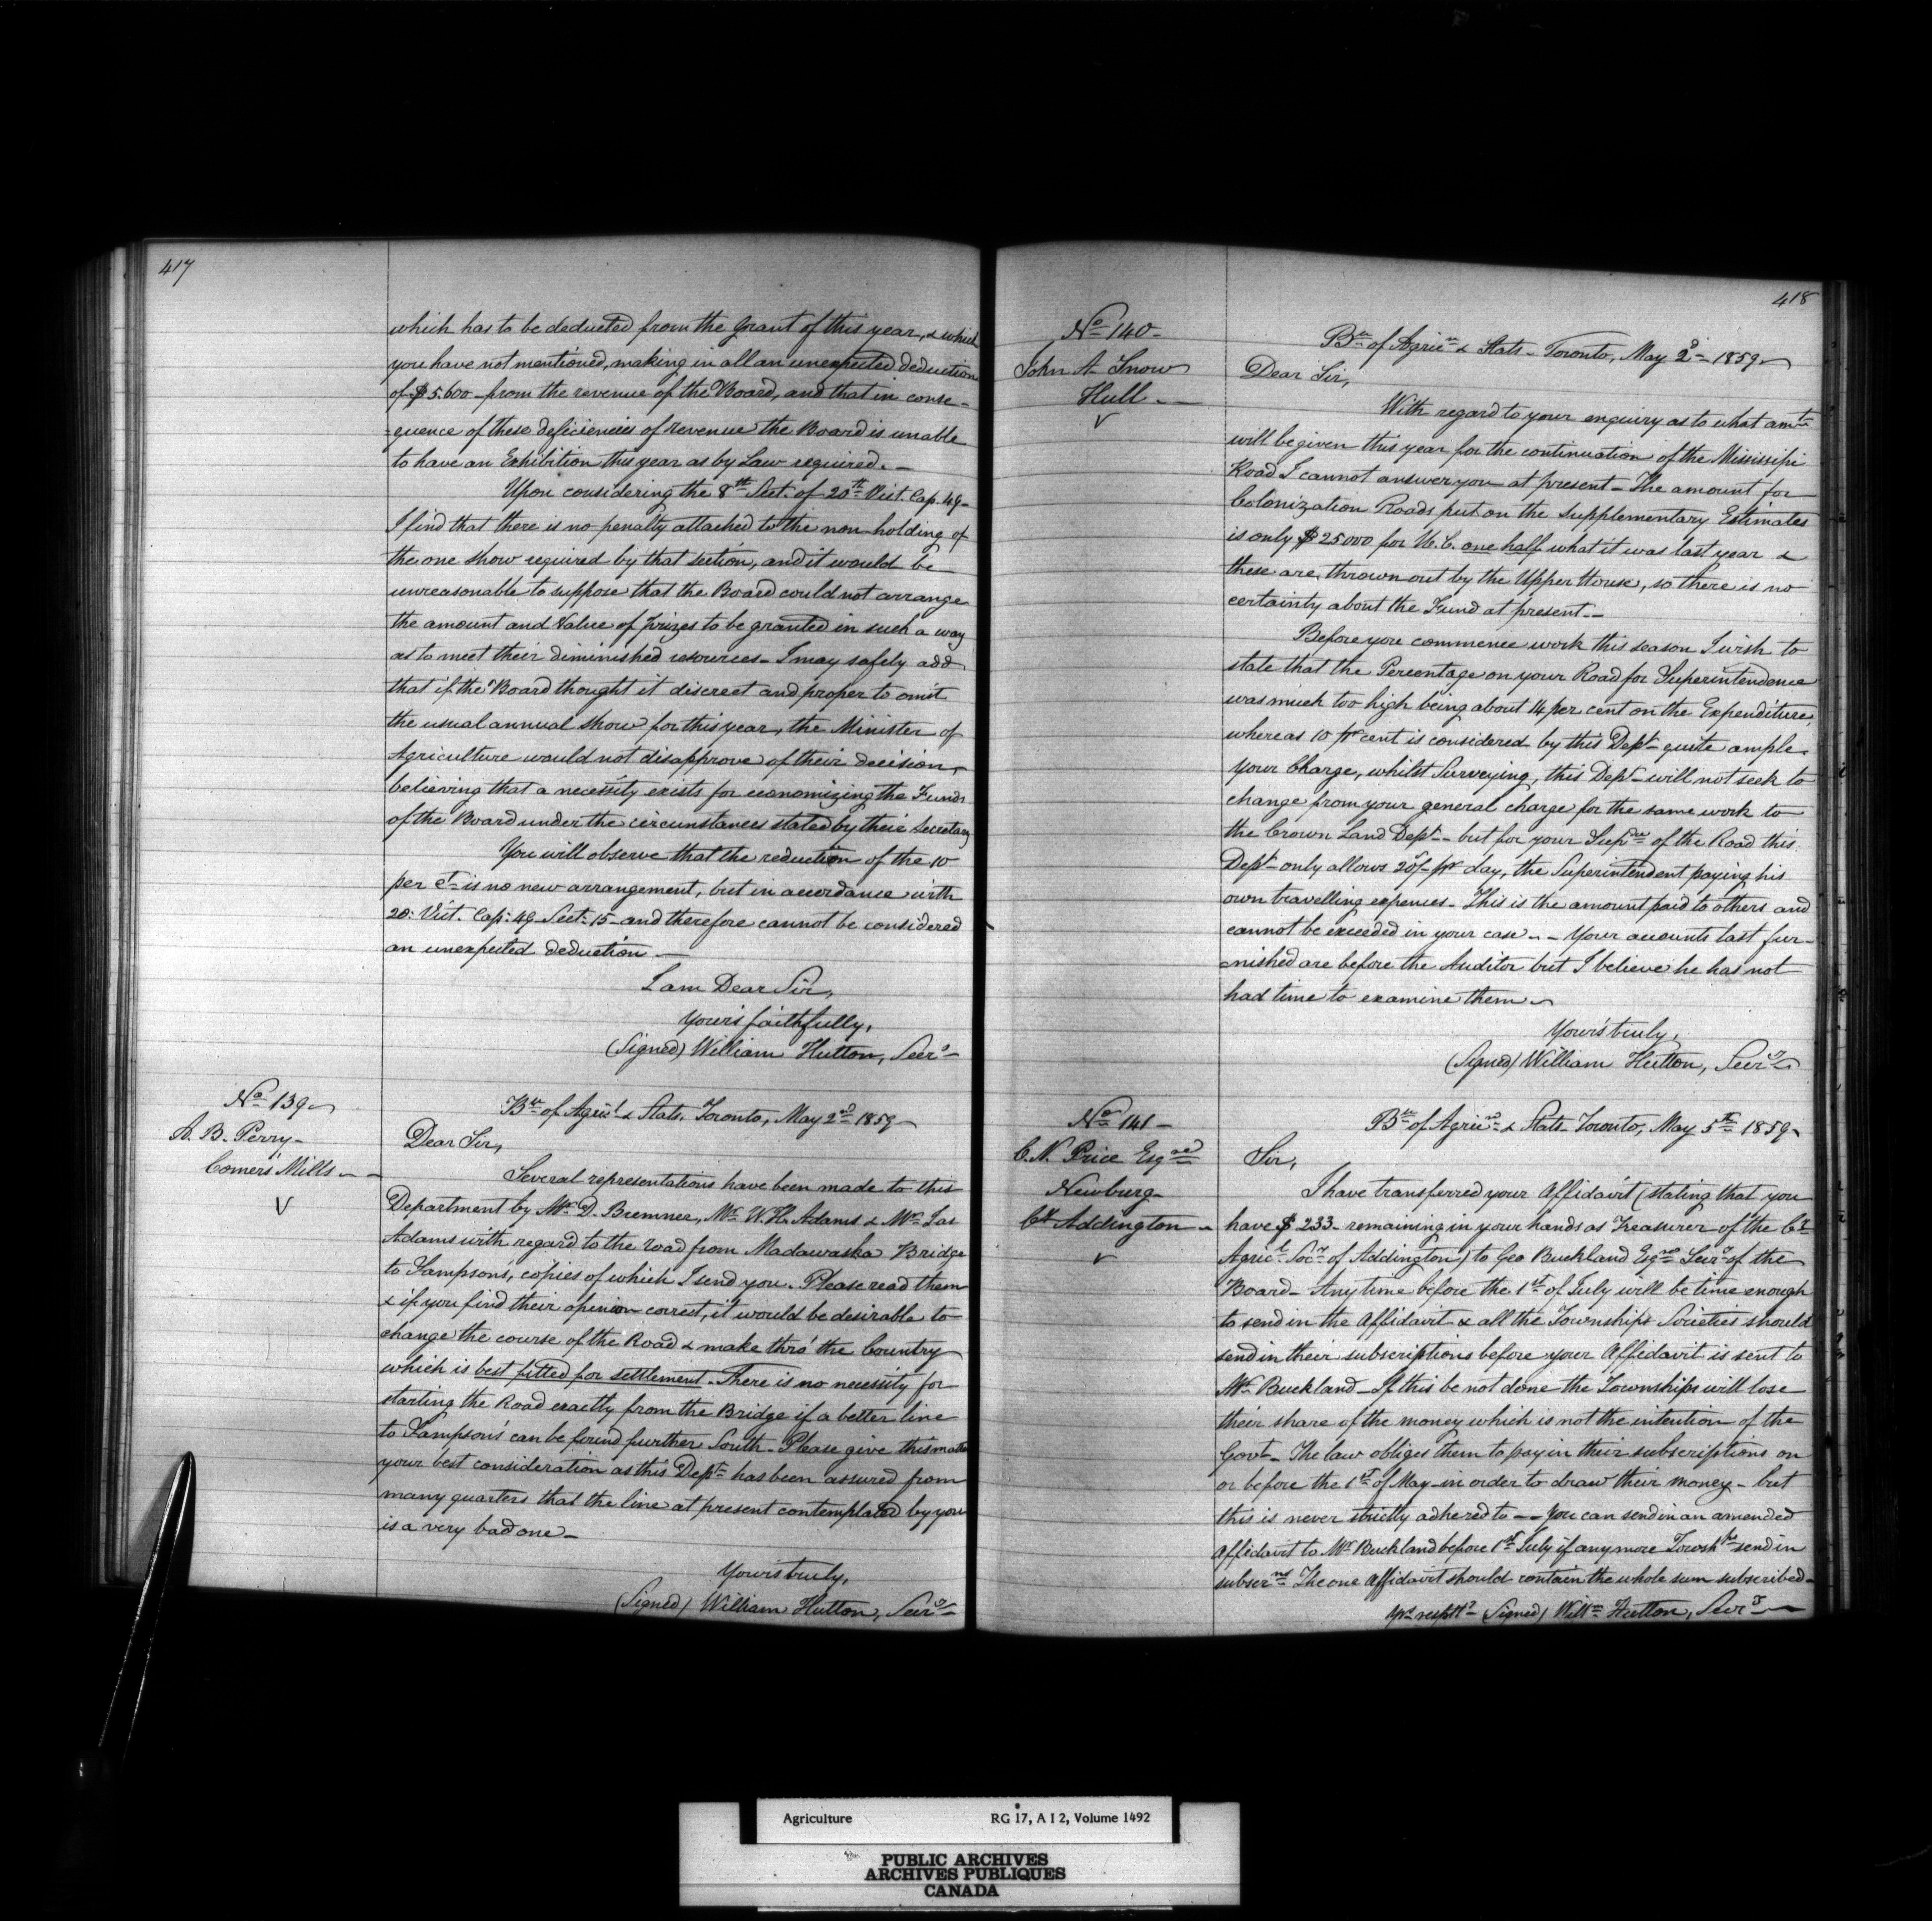 417
which has to be deducted from the Grant of this year, & which
you have not mentioned, making in all an unexpected deduction
of $5.600 - from the revenue of the Board, and that in conse-
=quence of these deficiencies of revenue the Board is unable
to have an Exhibition this year as by Law required. -
Upon considering the 8th Sect. of 20th Vict. Cap. 49-
I find that there is no penalty attached to the non holding of
the one show required by that section, and it would be
unreasonable to suppose that the Board could not arrange
the amount and Value of prizes to be granted in such a way
as to meet their diminished resources - I may safely add
that if the Board thought it discreet and proper to omit
the usual annual Show for this year, the Minister of
Agriculture would not disapprove of their decision,
believing that a necessity exists for economizing the Funds
of the Board under the circumstances stated by their Secretary
You will observe that the reduction of the 10
per ct - is no new arrangement, but in accordance with
20: Vict. Cap: 49 Sect: 15 - and therefore cannot be considered
an unexpected deduction —
I am Dear Sir,
Your's faithfully,
(Signed) William Hutton, Secry -
No 139
A. B. Perry -
Comers Mills - -
V
Bu of Agricl & Stats. Toronto, May 2nd 1859 -
Dear Sir,
Several representations have been made to this
Department by Mr D. Bremner, Mr W. H. Adams & Mr Jas
Adams with regard to the road from Madawaska Bridge
to Sampson's, copies of which I send you. Please read them
& if you find their opinion correct, it would be desirable to
change the course of the Road & make thro' the Country
which is best fitted for settlement. There is no necessity for
starting the Road exactly from the Bridge if a better line
to Sampson's can be found further South - Please give this matter
your best consideration as this Dept has been assured from
many quarters that the line at present contemplated by you
is a very bad one -
Your's truly,
(Signed) William Hutton, Secry -
418
No 140 -
John A Snow
Hull - -
V
Bu of Agricn & Stats - Toronto, May 2d - 1859
Dear Sir,
With regard to your enquiry as to what amt
will be given this year for the continuation of the Mississipi
Road I cannot answer you at present - The amount for
Colonization Roads put on the Supplementary Estimates
is only $25000 for U. C. one half what it was last year &
these are thrown out by the Upper House, so there is no
certainty about the Fund at present - -
Before you commence work this season I wish to
state that the Percentage on your Road for Superintendence
was much too high being about 14 per cent on the Expenditure,
whereas 10 pr cent is considered by this Dept - quite ample.
Your Charge, whilst Surveying, this Dept - will not seek to
change from your general charge for the same work to
the Crown Land Dept - - but for your Supce of the Road this
Dept - only allows 20/- pr day, the Superintendent paying his
own travelling expenses - This is the amount paid to others and
cannot be exceeded in your case - - Your accounts last fur-
=nished are before the Auditor but I believe he has not
had time to examine them -
Your's truly,
(Signed) William Hutton, Secry
No 141 -
C. N. Price Esqre
Newburg -
Cy Addington -
V
Bu of Agricn & Stats - Toronto, May 5th 1859 -
Sir,
I have transferred your Affidavit (stating that you
have $233 - remaining in your hands as Treasurer of the Cy
Agricl Socy of Addington) to Geo Buckland Esqre Secry of the
Board - Any time before the 1st of July will be time enough
to send in the Affidavit & all the Township Societies should
send in their subscriptions before your Affidavit is sent to
Mr Buckland - If this be not done the Townships will lose
their share of the money which is not the intention of the
Govt - The law obliges them to pay in their subscriptions on
or before the 1st of May - in order to draw their money - but
this is never strictly adhered to - - You can send in an amended
Affidavit to Mr Buckland before 1st July if any more Townshps send in
subscrns The one Affidavit should contain the whole sum subscribed -
Yrs respy (Signed) Willm Hutton, Secry
Agriculture RG 17, A I 2, Volume 1492
PUBLIC ARCHIVES
ARCHIVES PUBLIQUES
CANADA